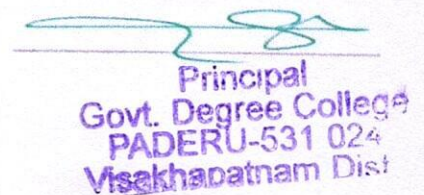 Principal
Govt. Degree College
PADERU-531 024
Visakhapatnam Dist